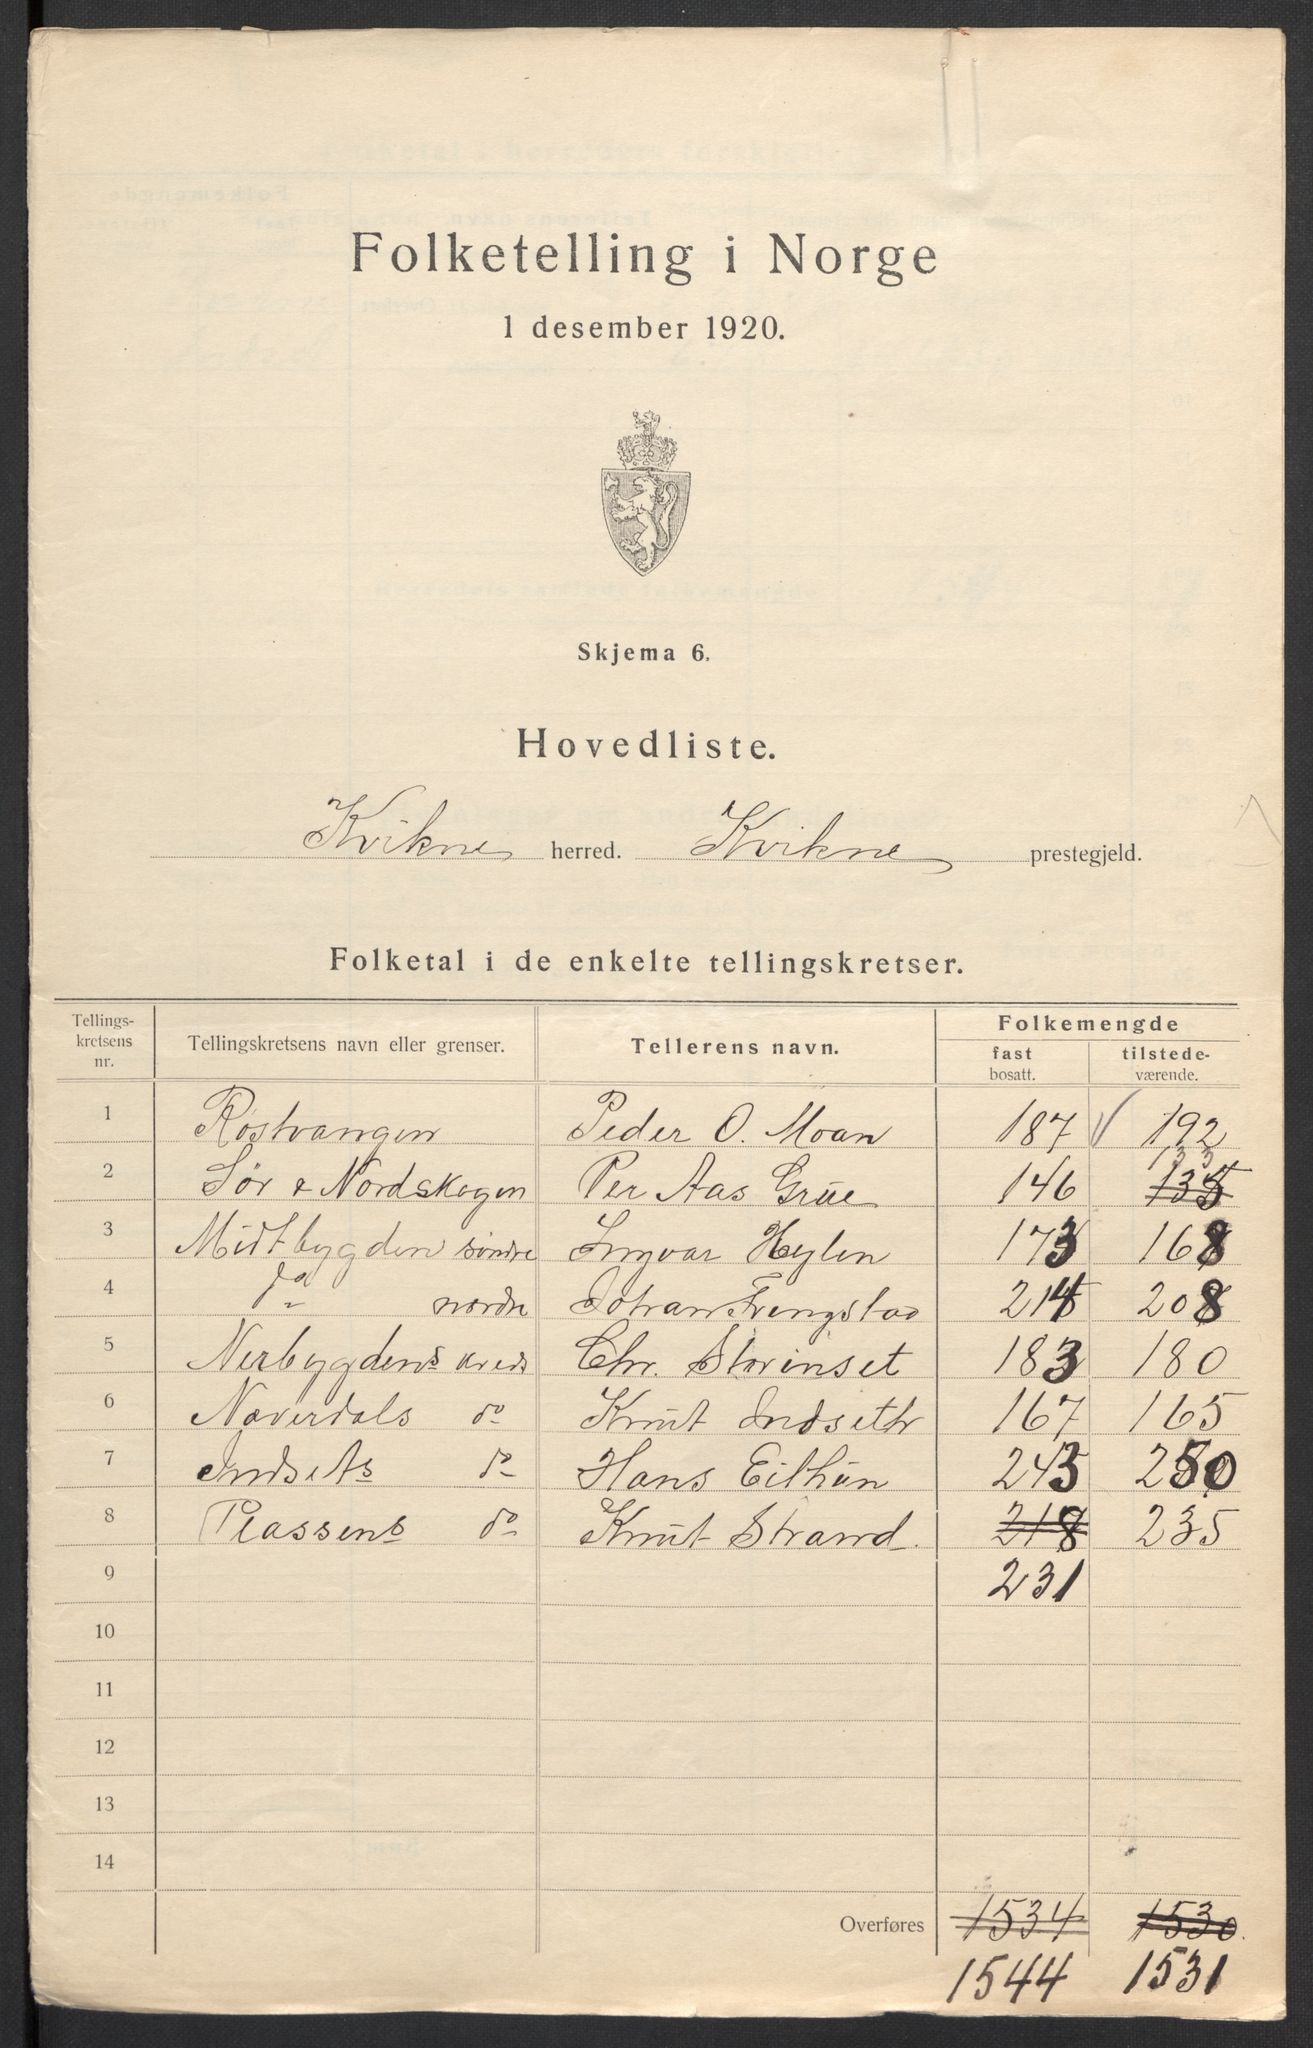 Folketelling i Norge
1 desember 1920.
Skjema 6.
Hovedliste.
Kvikne herred. Kvikne prestegjeld.
Folketal i de enkelte tellingskretser.
Tellings-kretsens nr. Tellingskretsens navn eller grenser. Tellerens navn. Folkemengde fast bosatt. tilstede-værende.
1 Røstvangen Peder O. Moan 187 192
133
2 Sør & Nordskogen Per Aas Grue 146 135
3 Midtbygden søndre Ingvar Heylen 173 168
4 do nordre Johan Frengstad 214 208
5 Nerbygdens kreds Chr. Storinset 183 180
6 Næverdals do Knut Indseth 167 165
7 Indsets do Hans Eithun 243 250
8 Plassens do Knut Strand. 218 235
9 231
10
11
12
13
14
Overføres 1534 1530.
1544 1531